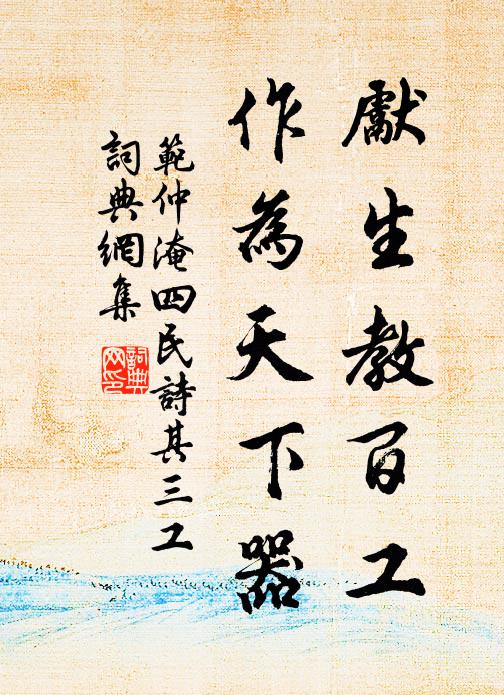 獻生教百工
作為天下器
範仲淹四民詩其三工
詞典網集
詞典
网印